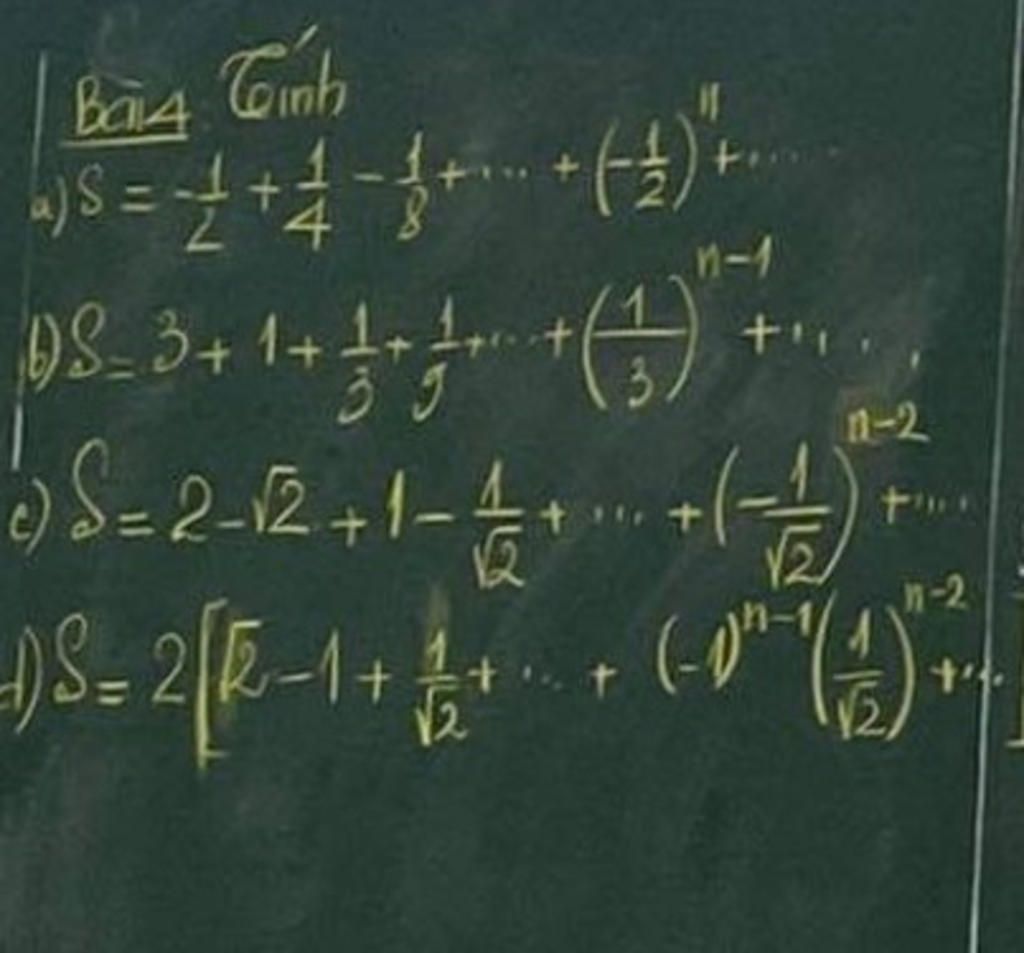 Bài 4 Tính
a) S = -1/2 + 1/4 - 1/8 + ... + (-1/2)^n + ....
b) S = 3 + 1 + 1/3 + 1/9 + ... + (1/3)^(n-1) + ....
c) S = 2 - √2 + 1 - 1/√2 + ... + (-1/√2)^(n-2) + ....
d) S = 2[√2 - 1 + 1/√2 + ... + (-1)^(n-1) (1/√2)^(n-2) + ...]